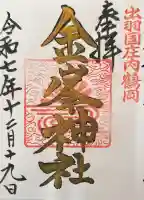 出羽国庄内鶴岡
奉拝
金峯神社
令和七年十二月十九日